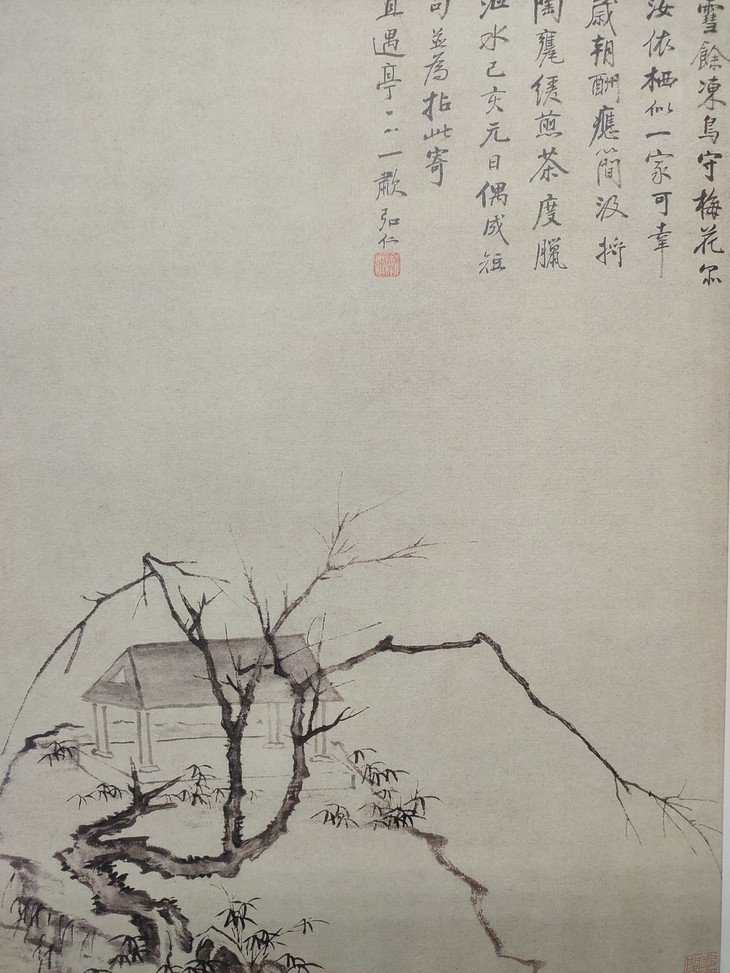 雪餘凍鳥守梅花尔
汝依栖似一家可幸
歲朝酬應簡汲將
陶甕缓煎茶度臘
水己亥元日偶成短
句並為拈此寄
遇亭一歗弘仁